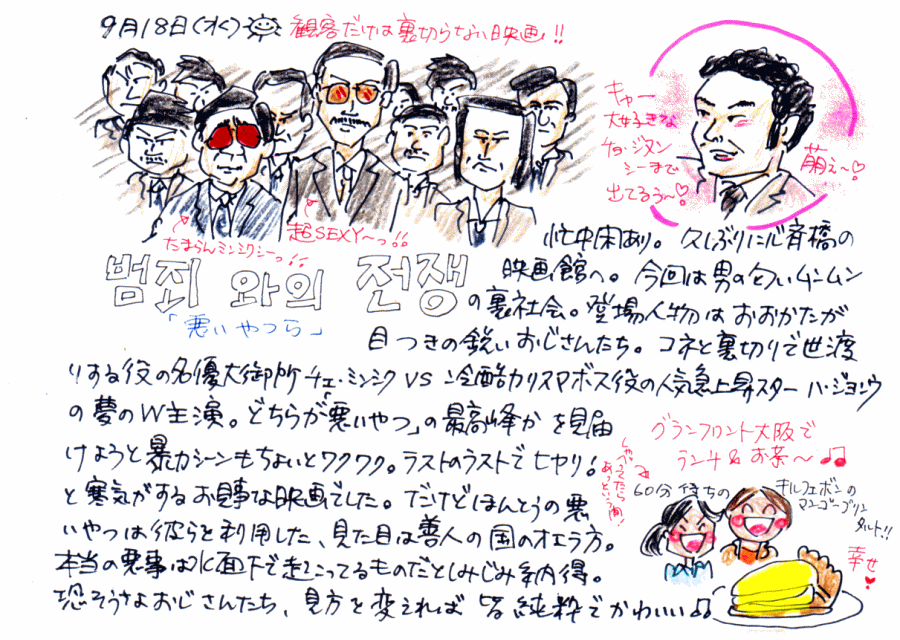 9月18日(水) 観客だけは裏切らない映画!!
キャー
大好きな
チョ・ジヌン
シーまで
出てるぅ〜♡
萌え〜♡
たまらんミンシクシーっ!!
超SEXY〜っ!!
범죄와의 전쟁
「悪いやつら」
忙中閑あり。久しぶりに心斉橋の
映画館へ。今回は男の匂いムンムン
の裏社会。登場人物はおおかたが
目つきの鋭いおじさんたち。コネと裏切りで世渡
りする役の名優大御所チェ・ミンシク VS 冷酷カリスマボス役の人気急上昇スターハ・ジョンウ
の夢のW主演。どちらが「悪いやつ」の最高峰かを見届
けようと暴力シーンもちょいとワクワク。ラストのラストでヒヤリ!
と寒気がするお見事な映画でした。だけどほんとうの悪
いやつは彼らを利用した、見た目は善人の国のオエラ方。
本当の悪事は水面下で起こってるものだとしみじみ納得。
恐そうなおじさんたち、見方を変えれば皆純粋でかわいい♫
グランフロント大阪で
ランチ&お茶〜♫
しゃべってたら
あっという間!
60分待ちの
キルフェボンの
マンゴープリン
タルト!!
幸せ
♥